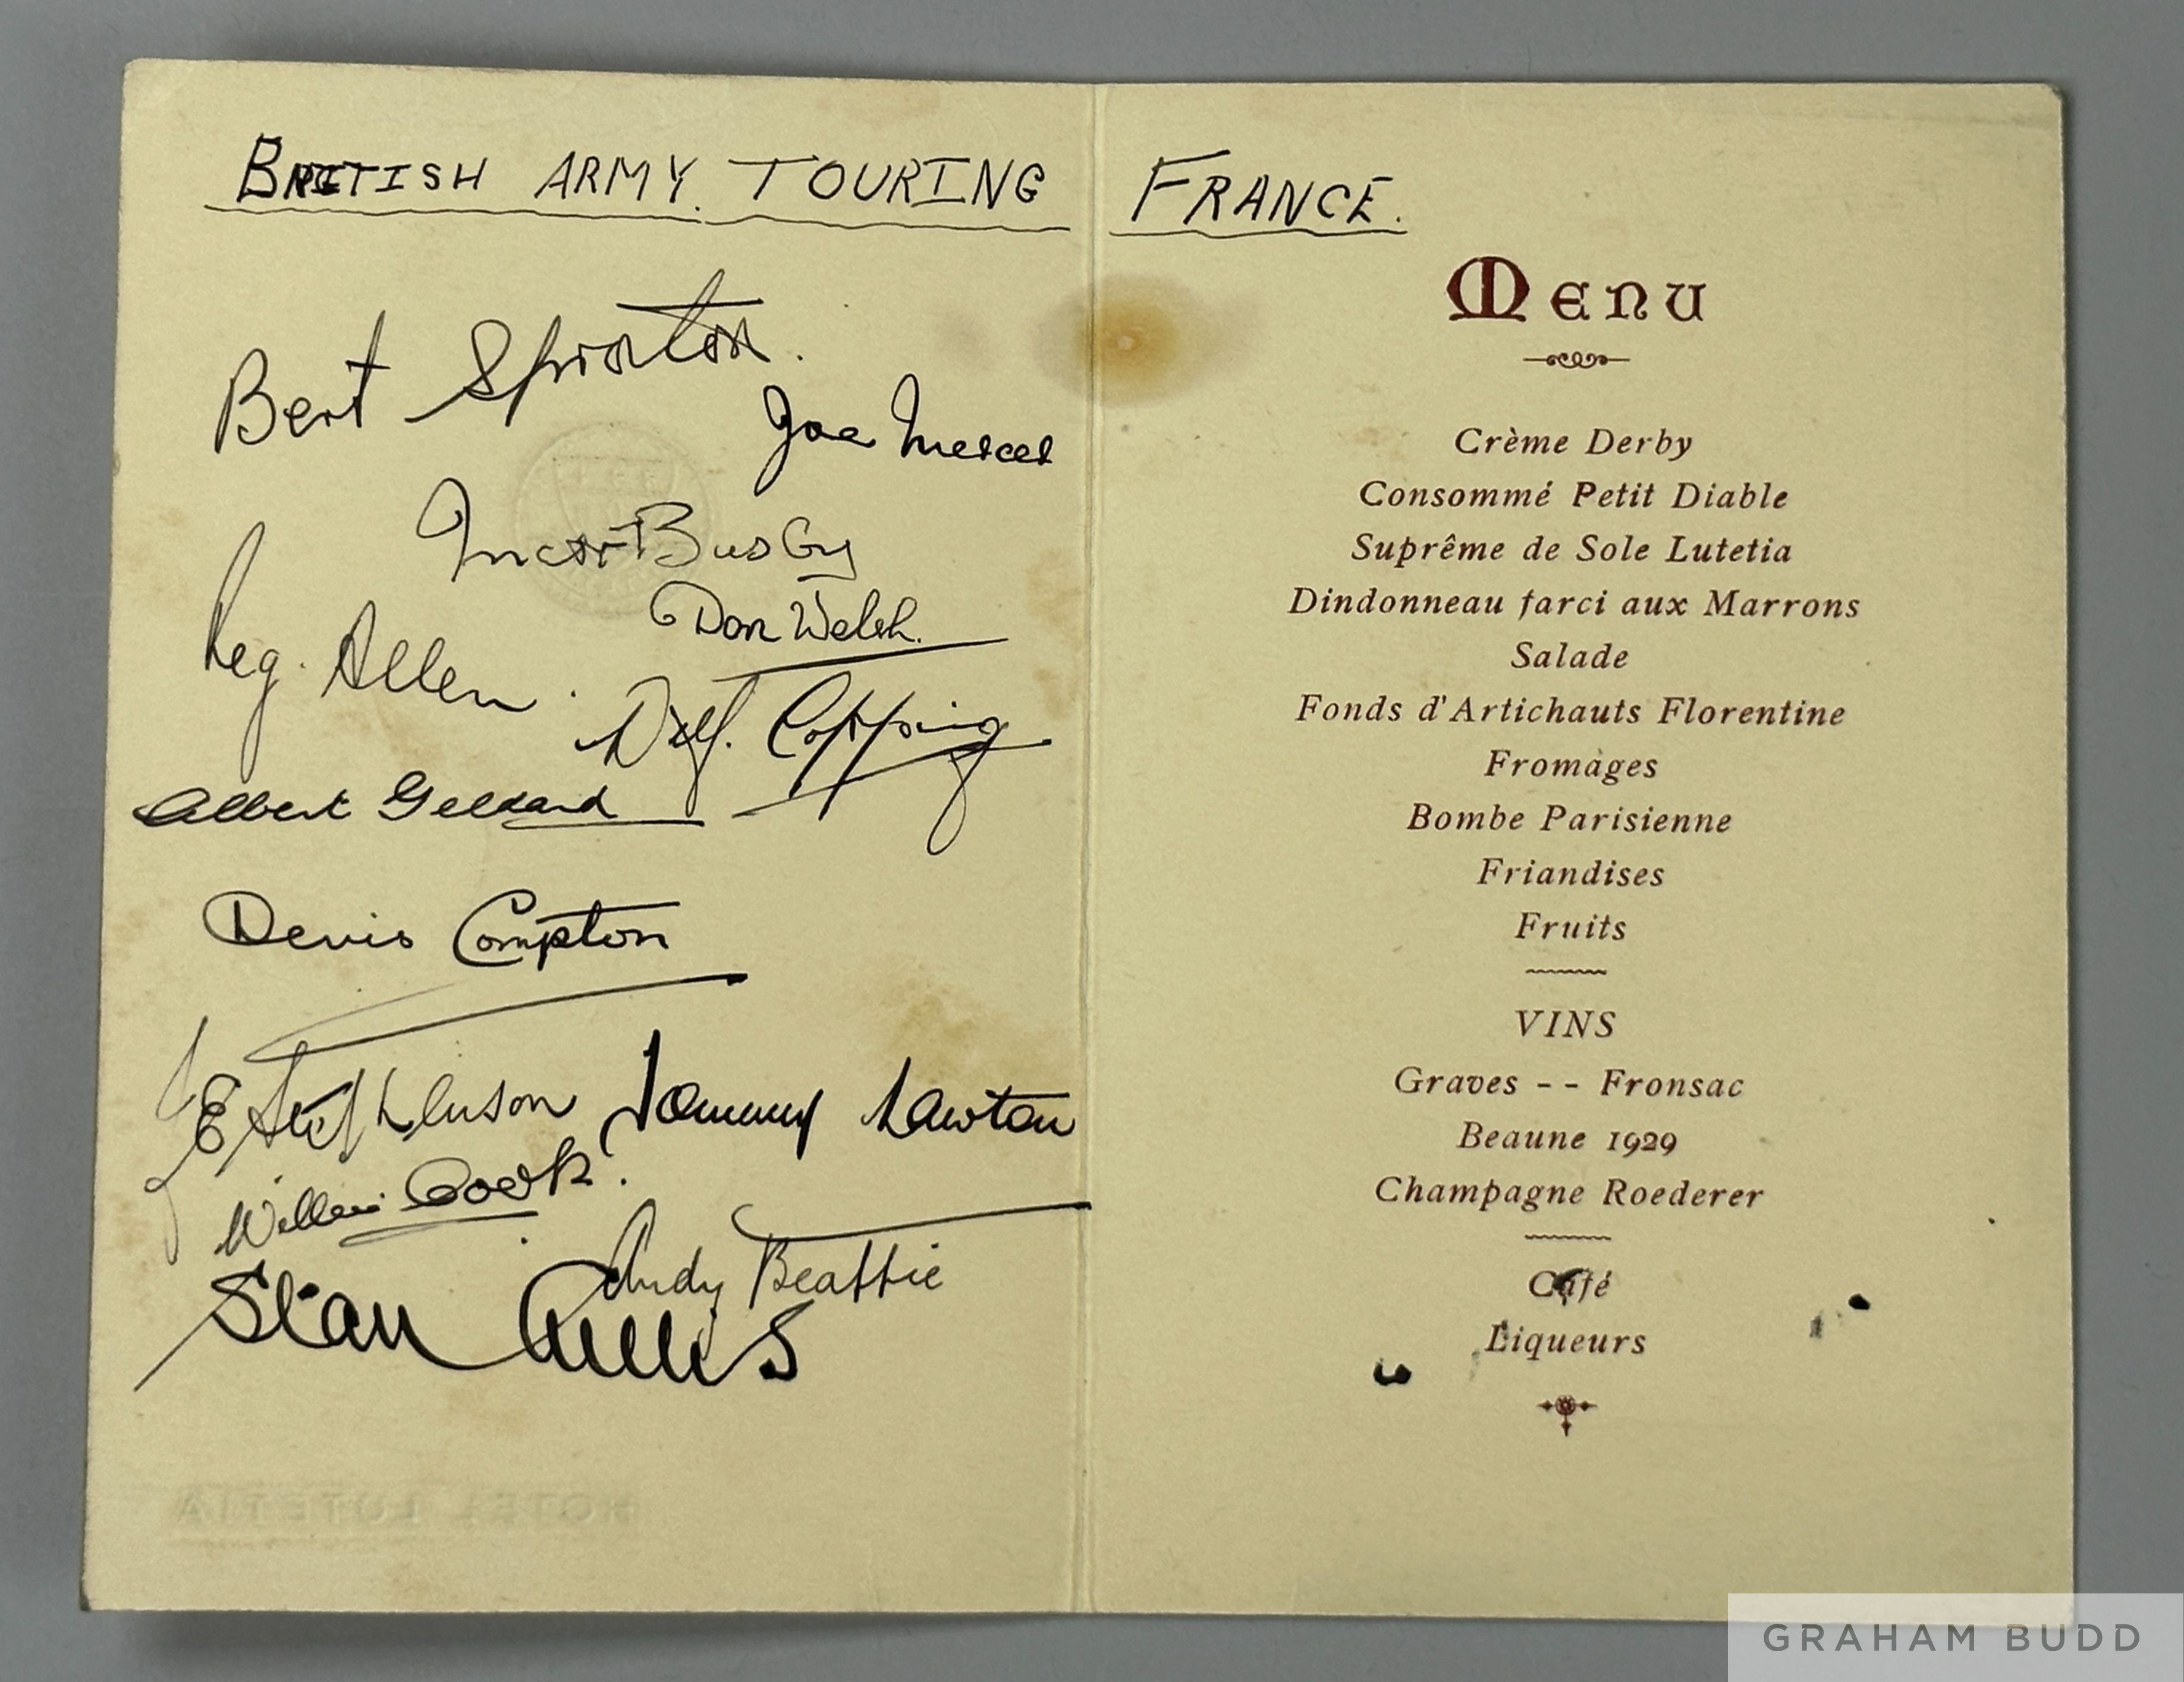 BRITISH ARMY. TOURING FRANCE.
Bert Sproston.
Joe Mercer
Matt Busby
Don Welsh.
Reg. Allen.
Wilf. Copping
Albert Geldard
Denis Compton
E Stephenson
Tommy Lawton
Willie Cook.
Andy Beattie
Stan Cullis
HOTEL LUTETIA
MENU
Crème Derby
Consommé Petit Diable
Suprême de Sole Lutetia
Dindonneau farci aux Marrons
Salade
Fonds d'Artichauts Florentine
Fromages
Bombe Parisienne
Friandises
Fruits
VINS
Graves - - Fronsac
Beaune 1929
Champagne Roederer
Café
Liqueurs
GRAHAM BUDD